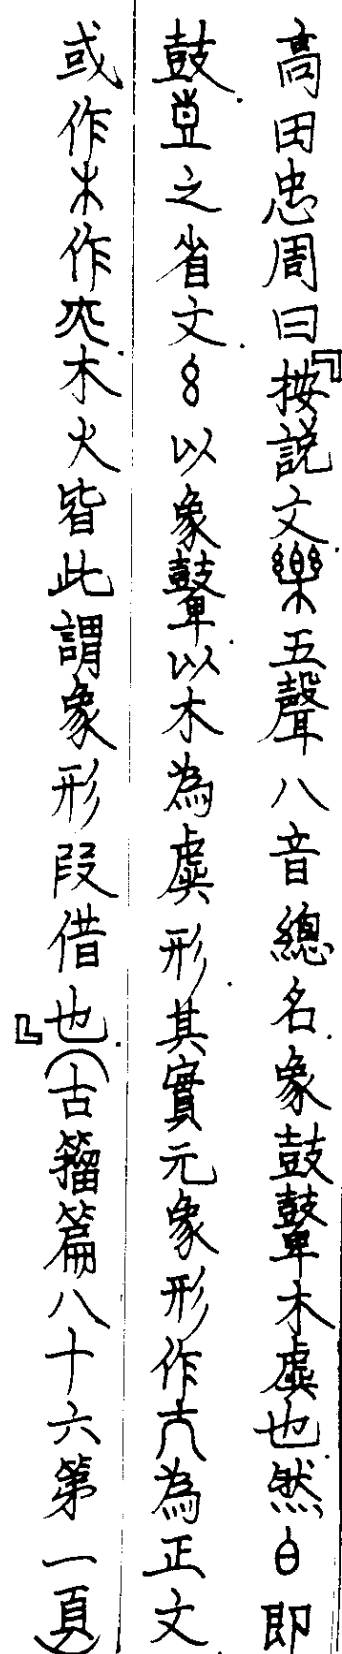 高田忠周曰『按説文樂五聲八音總名象鼓鼙木虡也然即
鼓之省文以象鼙以木為虡形其實元象形作為正文
或作木作木火皆此謂象形叚借也』(古籀篇八十六第一頁)